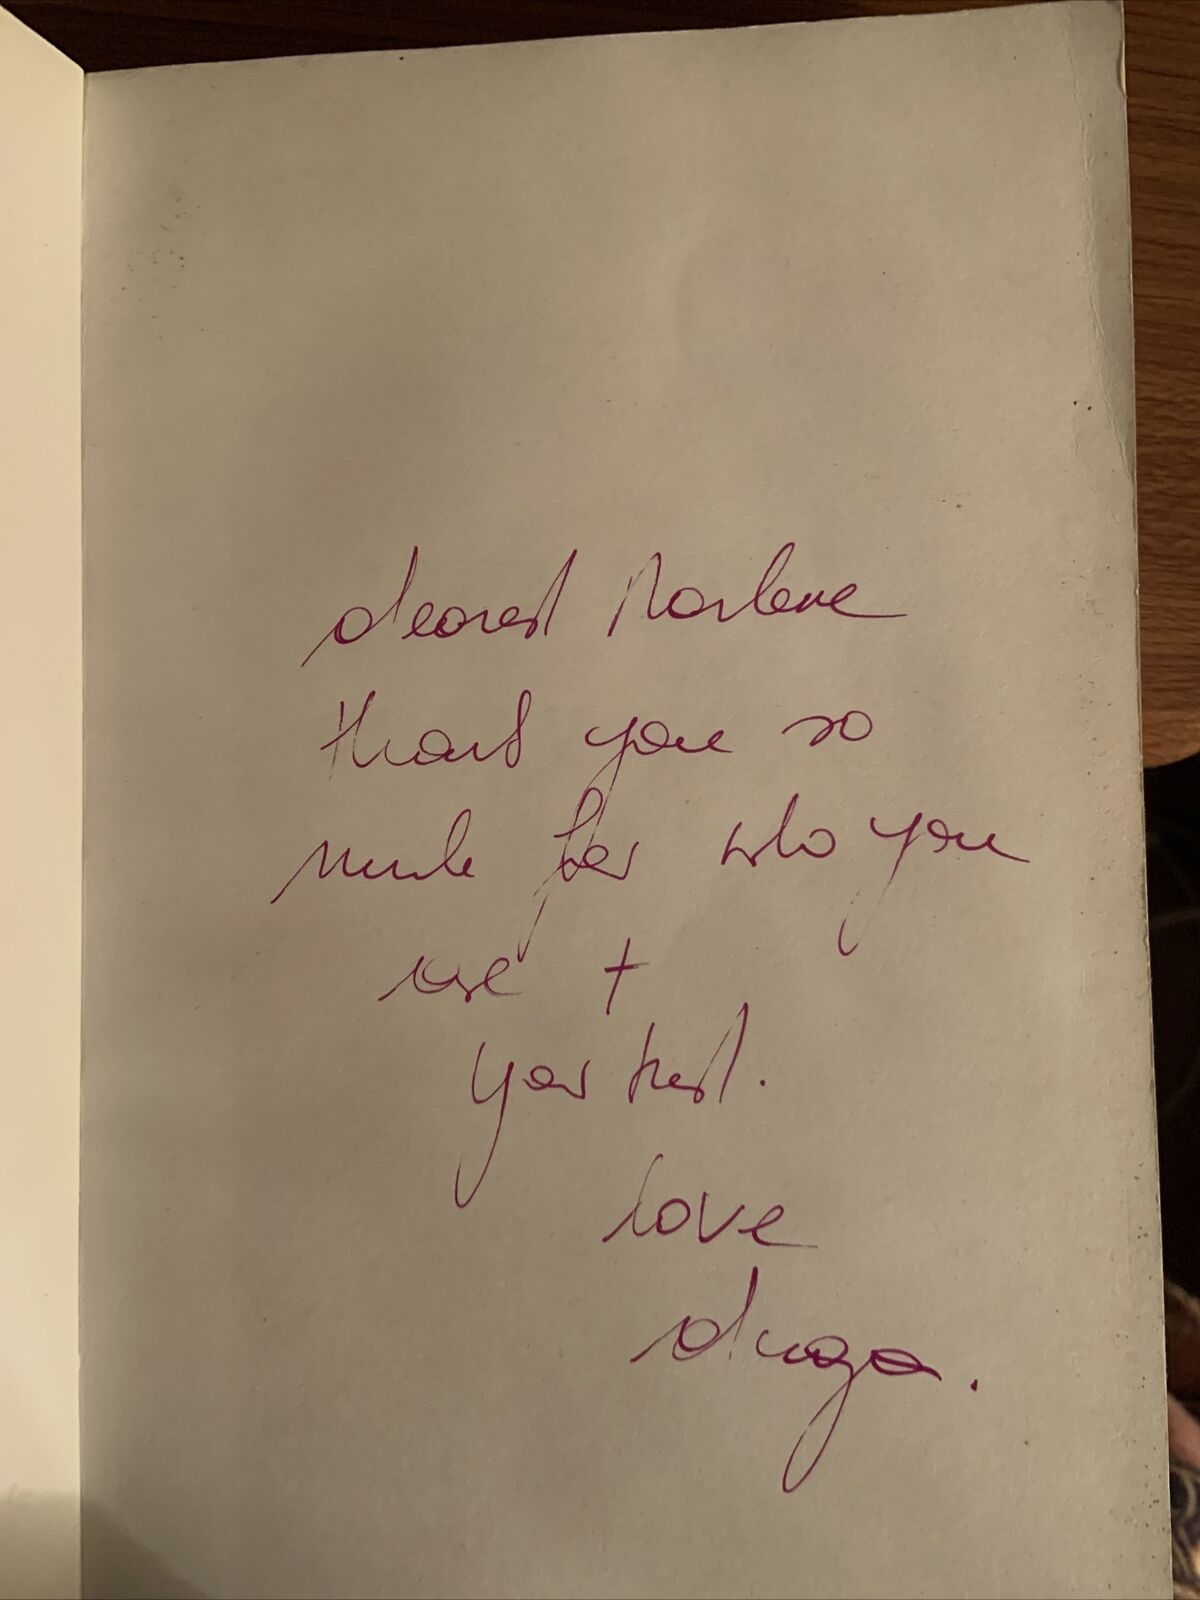 dearest Marlene
thank you so
much for who you
are +
your trust.
love